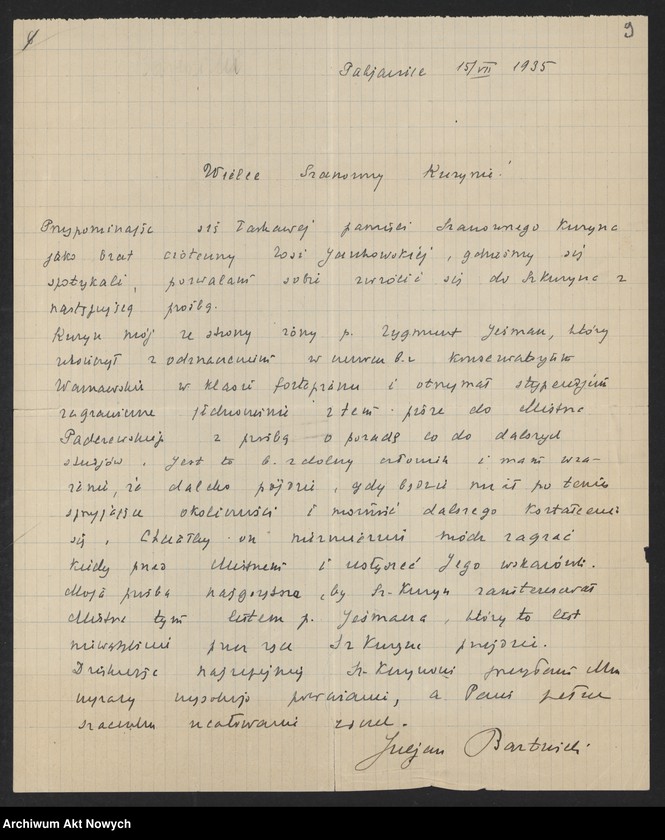 9
Pabjanice 15/VII 1935
Wielce Szanowny Kuzynie!
Przypominając się łaskawej pamięci Szanownego Kuzyna
jako brat cioteczny Zosi Jankowskiej, gdzieśmy się
spotykali, pozwalam sobie zwrócić się do Sz Kuzyna z
następującą prośbą.
Kuzyn mój ze strony żony p. Zygmunt Jeśman, który
ukończył z odznaczeniem w czerwcu b.r. Konserwatorjum
Warszawskie w klasie fortepianu i otrzymał stypendjum
zagraniczne jednocześnie z tem pisze do Mistrza
Paderewskiego z prośbą o poradę co do dalszych
studjów. Jest to b. zdolny człowiek i mam wra-
żenie, że daleko pójdzie, gdy będzie miał po temu
sprzyjające okoliczności i możność dalszego kształcenia
się. Chciałby on niezmiernie módz zagrać
kiedy przed Mistrzem i usłyszeć Jego wskazówki.
Moja prośba najgorętsza, by Sz. Kuzyn zainteresował
Mistrza tym listem p. Jeśmana, który to list
niewątpliwie przez ręce Sz Kuzyna przejdzie.
Dziękując najuprzejmiej Sz. Kuzynowi przesyłam Mu
wyrazy wysokiego poważania, a Pani pełne
szacunku ucałowanie rąk.
Juljan Bartnicki
Archiwum Akt Nowych